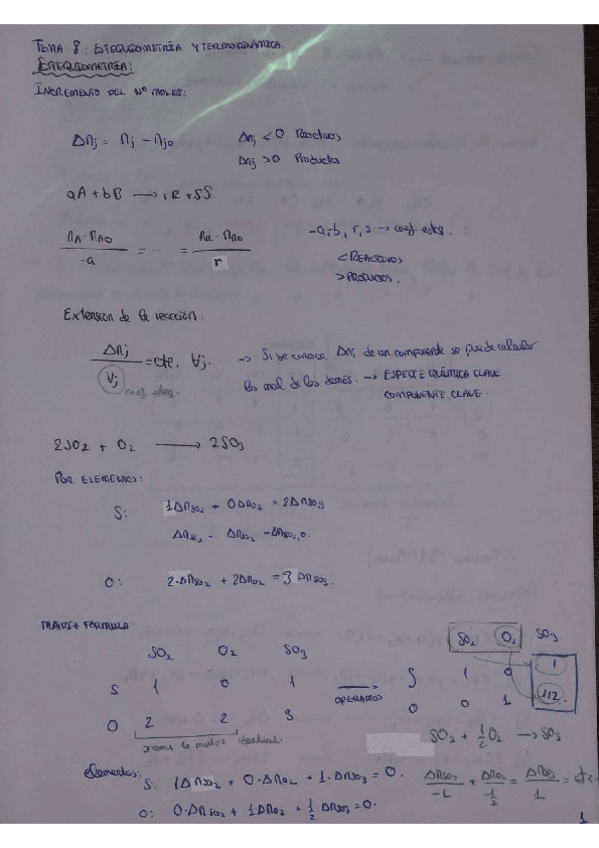 TEMA 8: ESTEQUIOMETRÍA Y TERMODINÁMICA.
ESTEQUIOMETRÍA:
INCREMENTO DEL Nº MOLES:
Δnj = nj - njo    Δnj < 0 Reactivos
Δnj > 0 Productos
aA + bB → rR + sS
nA - nAo / -a = ... = nR - nRo / r    -a, b, r, s → coef esteq.
< REACTIVOS
> PRODUCTOS.
Extensión de la reacción:
Δnj / νj = cte. ∀j.    → Si se conoce Δnj de un componente se puede calcular
coef esteq.    los mol de los demás. → ESPECIE QUÍMICA CLAVE
COMPONENTE CLAVE.
2SO2 + O2 → 2SO3
POR ELEMENTOS:
S: 1ΔnSO2 + 0ΔnO2 = 2ΔnSO3
ΔnSO2 - ΔnSO2 - ΔnSO2,0.
O: 2·ΔnSO2 + 2ΔnO2 = 3 ΔnSO3.
FÓRMULA    SO2 O2 SO3
SO2 O2 SO3
S 1 0 1    → OPERANDO    S 1 0 1
O 2 2 3    O 0 1 1/2.
matriz identidad.    SO2 + 1/2 O2 → SO3
elementos: S: 1ΔnSO2 + 0·ΔnO2 + 1·ΔnSO3 = 0.    ΔnSO2 / -1 + ΔnO2 / -1/2 = ΔnSO3 / 1 = cte.
O: 0·ΔnSO2 + 1ΔnO2 + 1/2 ΔnSO3 = 0.
1